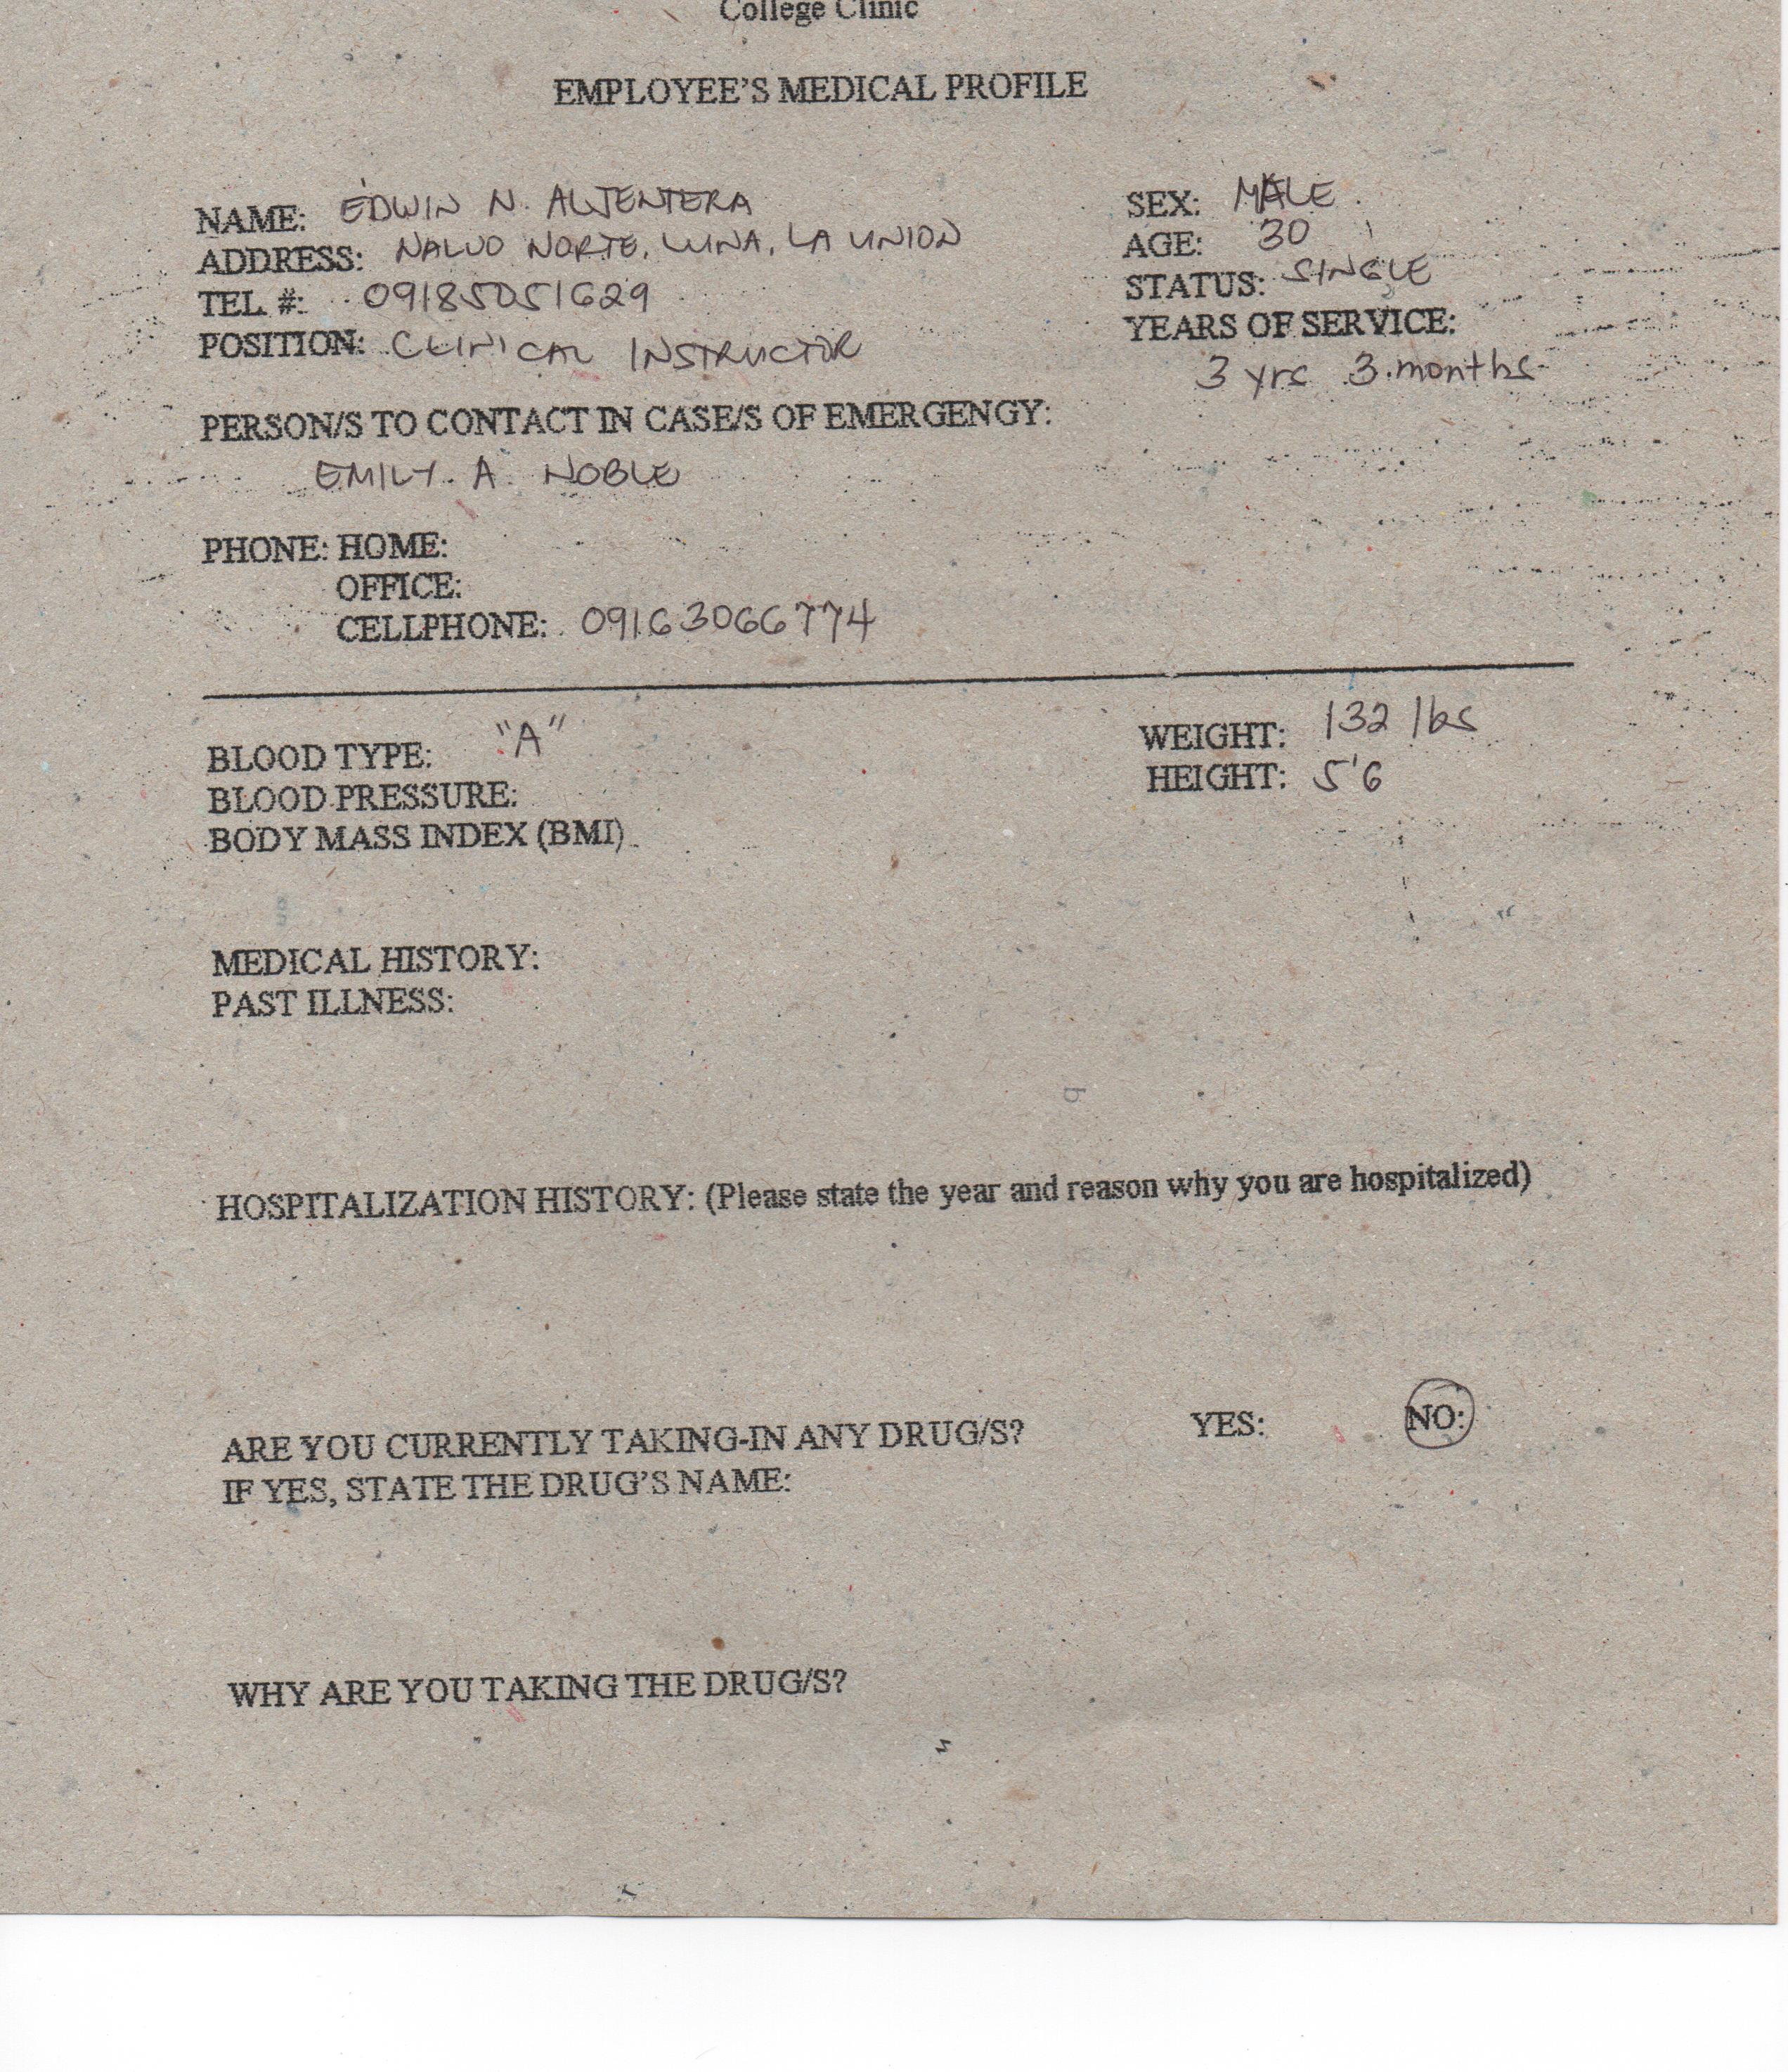 College Clinic
EMPLOYEE'S MEDICAL PROFILE
NAME: EDWIN N. ALTENTERA SEX: MALE
ADDRESS: NALVO NORTE, LUNA, LA UNION AGE: 30
TEL #: 09185051629 STATUS: SINGLE
POSITION: CLINICAL INSTRUCTOR YEARS OF SERVICE:
3 yrs 3 months
PERSON/S TO CONTACT IN CASE/S OF EMERGENGY:
EMILY A. NOBLE
PHONE: HOME:
OFFICE:
CELLPHONE: 09163066774
BLOOD TYPE: "A" WEIGHT: 132 lbs
BLOOD PRESSURE: HEIGHT: 5'6
BODY MASS INDEX (BMI)
MEDICAL HISTORY:
PAST ILLNESS:
HOSPITALIZATION HISTORY: (Please state the year and reason why you are hospitalized)
ARE YOU CURRENTLY TAKING-IN ANY DRUG/S? YES: NO:
IF YES, STATE THE DRUG'S NAME:
WHY ARE YOU TAKING THE DRUG/S?